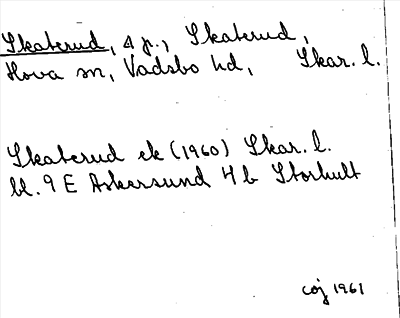 Skaterud, 4 g., Skaterud,
Hova sn, Vadsbo hd, Skar. l.
Skaterud ek (1960) Skar. l.
bl. 9 E Askersund 4 b Storhult
coj 1961